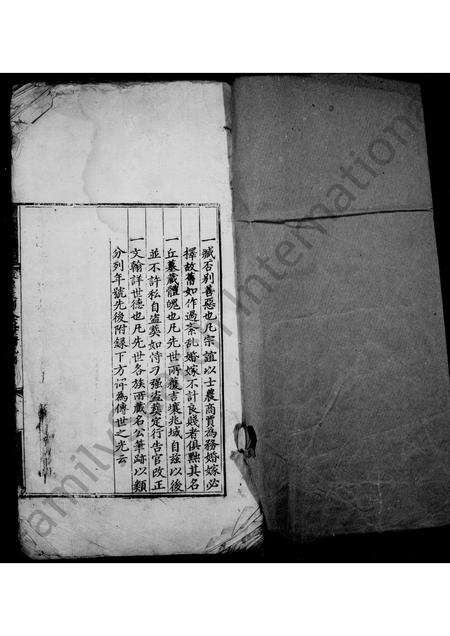 一臧否别善惡也凡宗誼以士農商賈為務婚嫁必
擇故舊如作過紊乱婚嫁不計良賤者俱黜其名
一丘墓藏體魄也凡先世所覆吉壤兆域自兹以後
並不許私自盗葬如恃刁强盗葬定行告官改正
一文翰詳世德也凡先世各族所藏名公筆跡以類
分列年號先後附録下方洊為傳世之光云